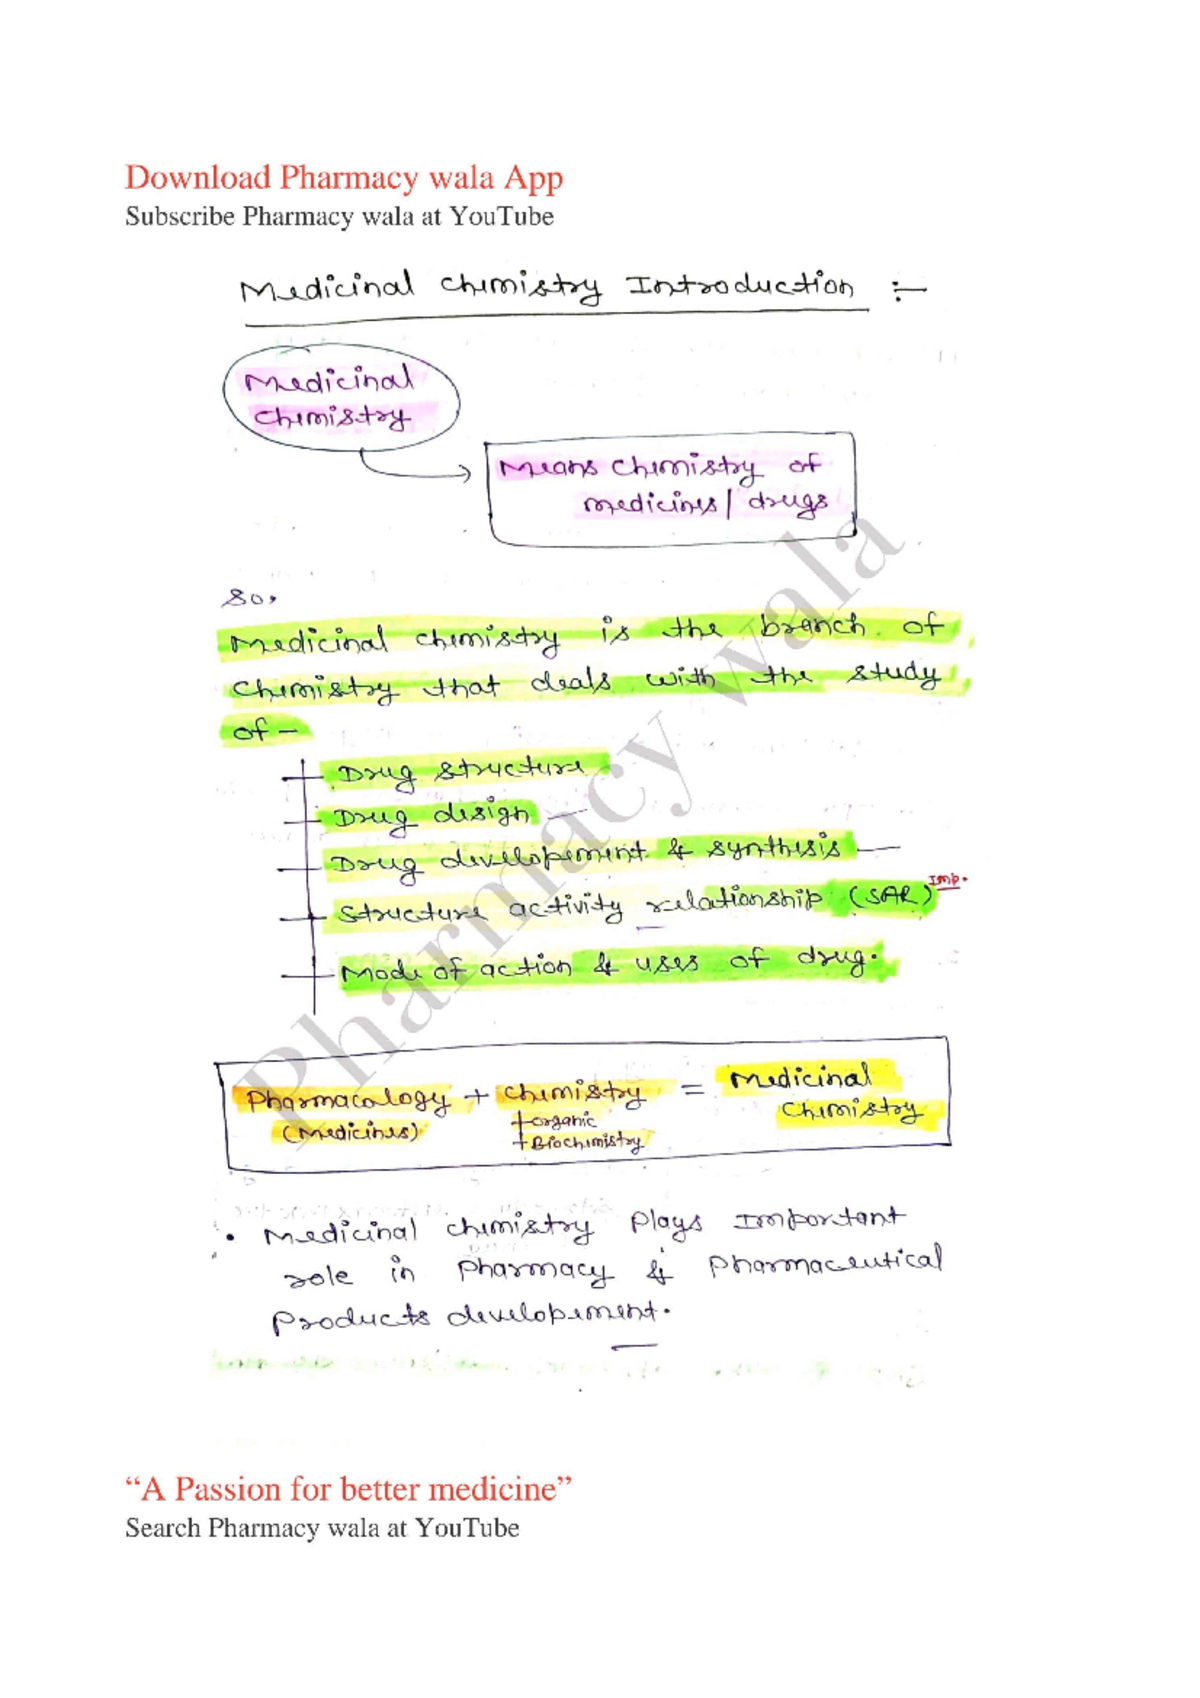 Download Pharmacy wala App
Subscribe Pharmacy wala at YouTube
Medicinal chemistry Introduction :-
Medicinal
chemistry
Means chemistry of
medicines/drugs
So,
Medicinal chemistry is the branch of
chemistry that deals with the study
of -
Drug structure
Drug design
Drug developement & synthesis
Structure activity relationship (SAR) Imp.
Mode of action & uses of drug.
Pharmacology + chemistry = Medicinal
(Medicines) +organic chemistry
+Biochemistry
• Medicinal chemistry plays important
role in pharmacy & pharmaceutical
products developement.
Pharmacy wala
“A Passion for better medicine”
Search Pharmacy wala at YouTube